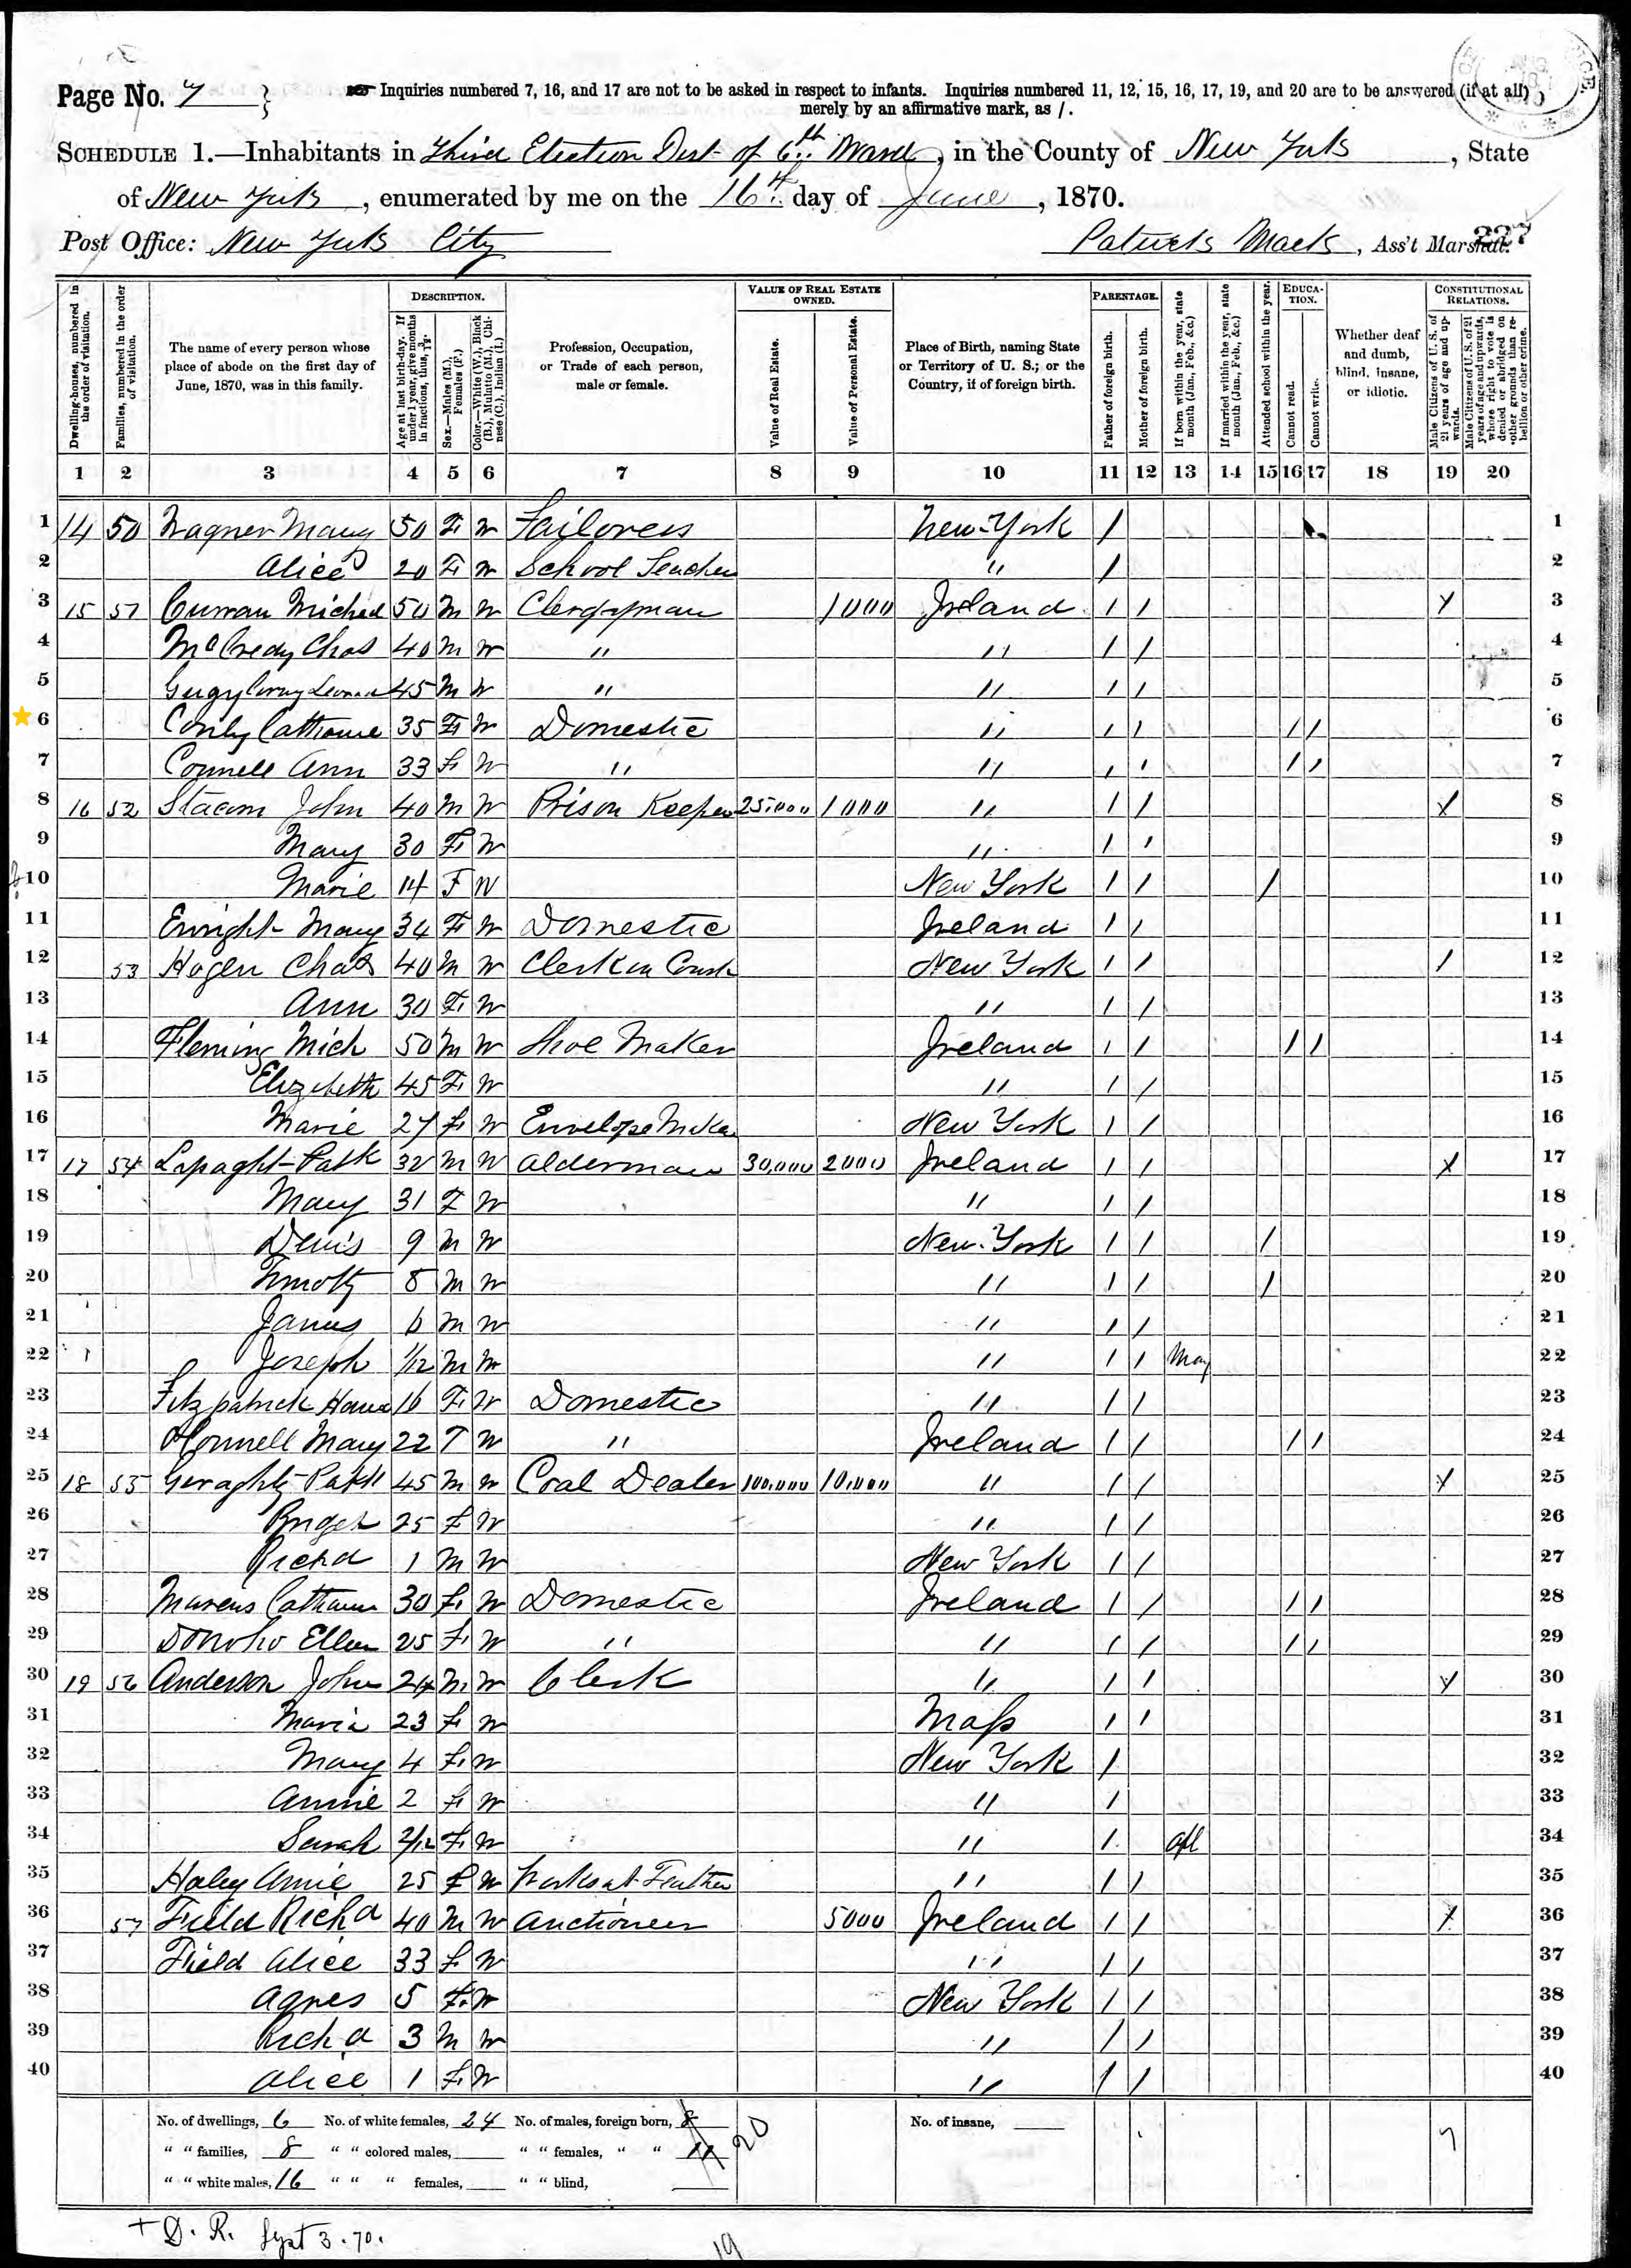 Page No. 7
Inquiries numbered 7, 16, and 17 are not to be asked in respect to infants. Inquiries numbered 11, 12, 15, 16, 17, 19, and 20 are to be answered (if at all)
merely by an affirmative mark, as /.
SCHEDULE 1.—Inhabitants in Third Election Dist of 6th Ward, in the County of New York, State
of New York, enumerated by me on the 16th day of June, 1870.
Post Office: New York City Ass't Marshal. 227
Dwelling-houses, numbered in the order of visitation.
Families, numbered in the order of visitation.
The name of every person whose place of abode on the first day of June, 1870, was in this family.
DESCRIPTION.
Age at last birth-day. If under 1 year, give months in fractions, thus, 3/12.
Sex.—Males (M.), Females (F.)
Color.—White (W.), Black (B.), Mulatto (M.), Chinese (C.), Indian (I.)
Profession, Occupation, or Trade of each person, male or female.
VALUE OF REAL ESTATE OWNED.
Value of Real Estate.
Value of Personal Estate.
Place of Birth, naming State or Territory of U. S.; or the Country, if of foreign birth.
PARENTAGE.
Father of foreign birth.
Mother of foreign birth.
If born within the year, state month (Jan., Feb., &c.)
If married within the year, state month (Jan., Feb., &c.)
Attended school within the year.
EDUCATION.
Cannot read.
Cannot write.
Whether deaf and dumb, blind, insane, or idiotic.
CONSTITUTIONAL RELATIONS.
Male Citizens of U. S. of 21 years of age and upwards.
Male Citizens of U. S. of 21 years of age and upwards, whose right to vote is denied or abridged on other grounds than rebellion or other crime.
1 2 3 4 5 6 7 8 9 10 11 12 13 14 15 16 17 18 19 20
1 14 50 Wagner Mary 50 F W Tailoress New York / 1
2 Alice 20 F W School Teacher " / 2
3 15 51 Curran Michael 50 M W Clergyman 1000 Ireland / / 3
4 McCredy Chas 40 M W " " / / 4
5 45 M W " " / / 5
6 Conly Catharine 35 F W Domestic " / / / / 6
7 Connell Ann 33 F W " " / / / / 7
8 16 52 Stacom John 40 M W Prison Keeper 25,000 1000 " / / 8
9 Mary 30 F W " / / 9
10 Marie 14 F W New York / / / 10
11 Enright Mary 34 F W Domestic Ireland / / 11
12 53 Hogen Chas 40 M W Clerk in Court New York / / / 12
13 Ann 30 F W " / / 13
14 Fleming Mich 50 M W Shoe Maker Ireland / / / / 14
15 Elizebeth 45 F W " / / 15
16 Marie 27 F W Envelope Maker New York / / 16
17 17 54 Patk 32 M W Alderman 30,000 2000 Ireland / / 17
18 Mary 31 F W " / / 18
19 Denis 9 M W New York / / / 19
20 Timoty 8 M W " / / / 20
21 James 6 M W " / / 21
22 Joseph 1/12 M W " / / May 22
23 Fitzpatrick Hana 16 F W Domestic " / / 23
24 OConnell Mary 22 F W " Ireland / / / / 24
25 18 55 Geraghty Patk 45 M W Coal Dealer 100,000 10,000 " / / 25
26 Briget 25 F W " / / 26
27 Richd 1 M W New York / / 27
28 30 F W Domestic Ireland / / / / 28
29 Donoho Ellen 25 F W " " / / / / 29
30 19 56 Anderson John 24 M W Clerk " / / 30
31 Maria 23 F W Mass / / 31
32 Mary 4 F W New York / 32
33 Annie 2 F W " / 33
34 Sarah 2/12 F W " / Apl 34
35 Haley Annie 25 F W Works at Feather " / / 35
36 57 Field Richd 40 M W Auctioneer 5000 Ireland / / 36
37 Field Alice 33 F W " / / 37
38 Agnes 5 F W New York / / 38
39 Richd 3 M W " / / 39
40 Alice 1 F W " / / 40
No. of dwellings, 6 No. of white females, 24 No. of males, foreign born, 8 20 No. of insane, 7
" " families, 8 " " colored males, " " females, " "
" " white males, 16 " " " females, " " blind,
+ D. R. Sept 3. 70.
19